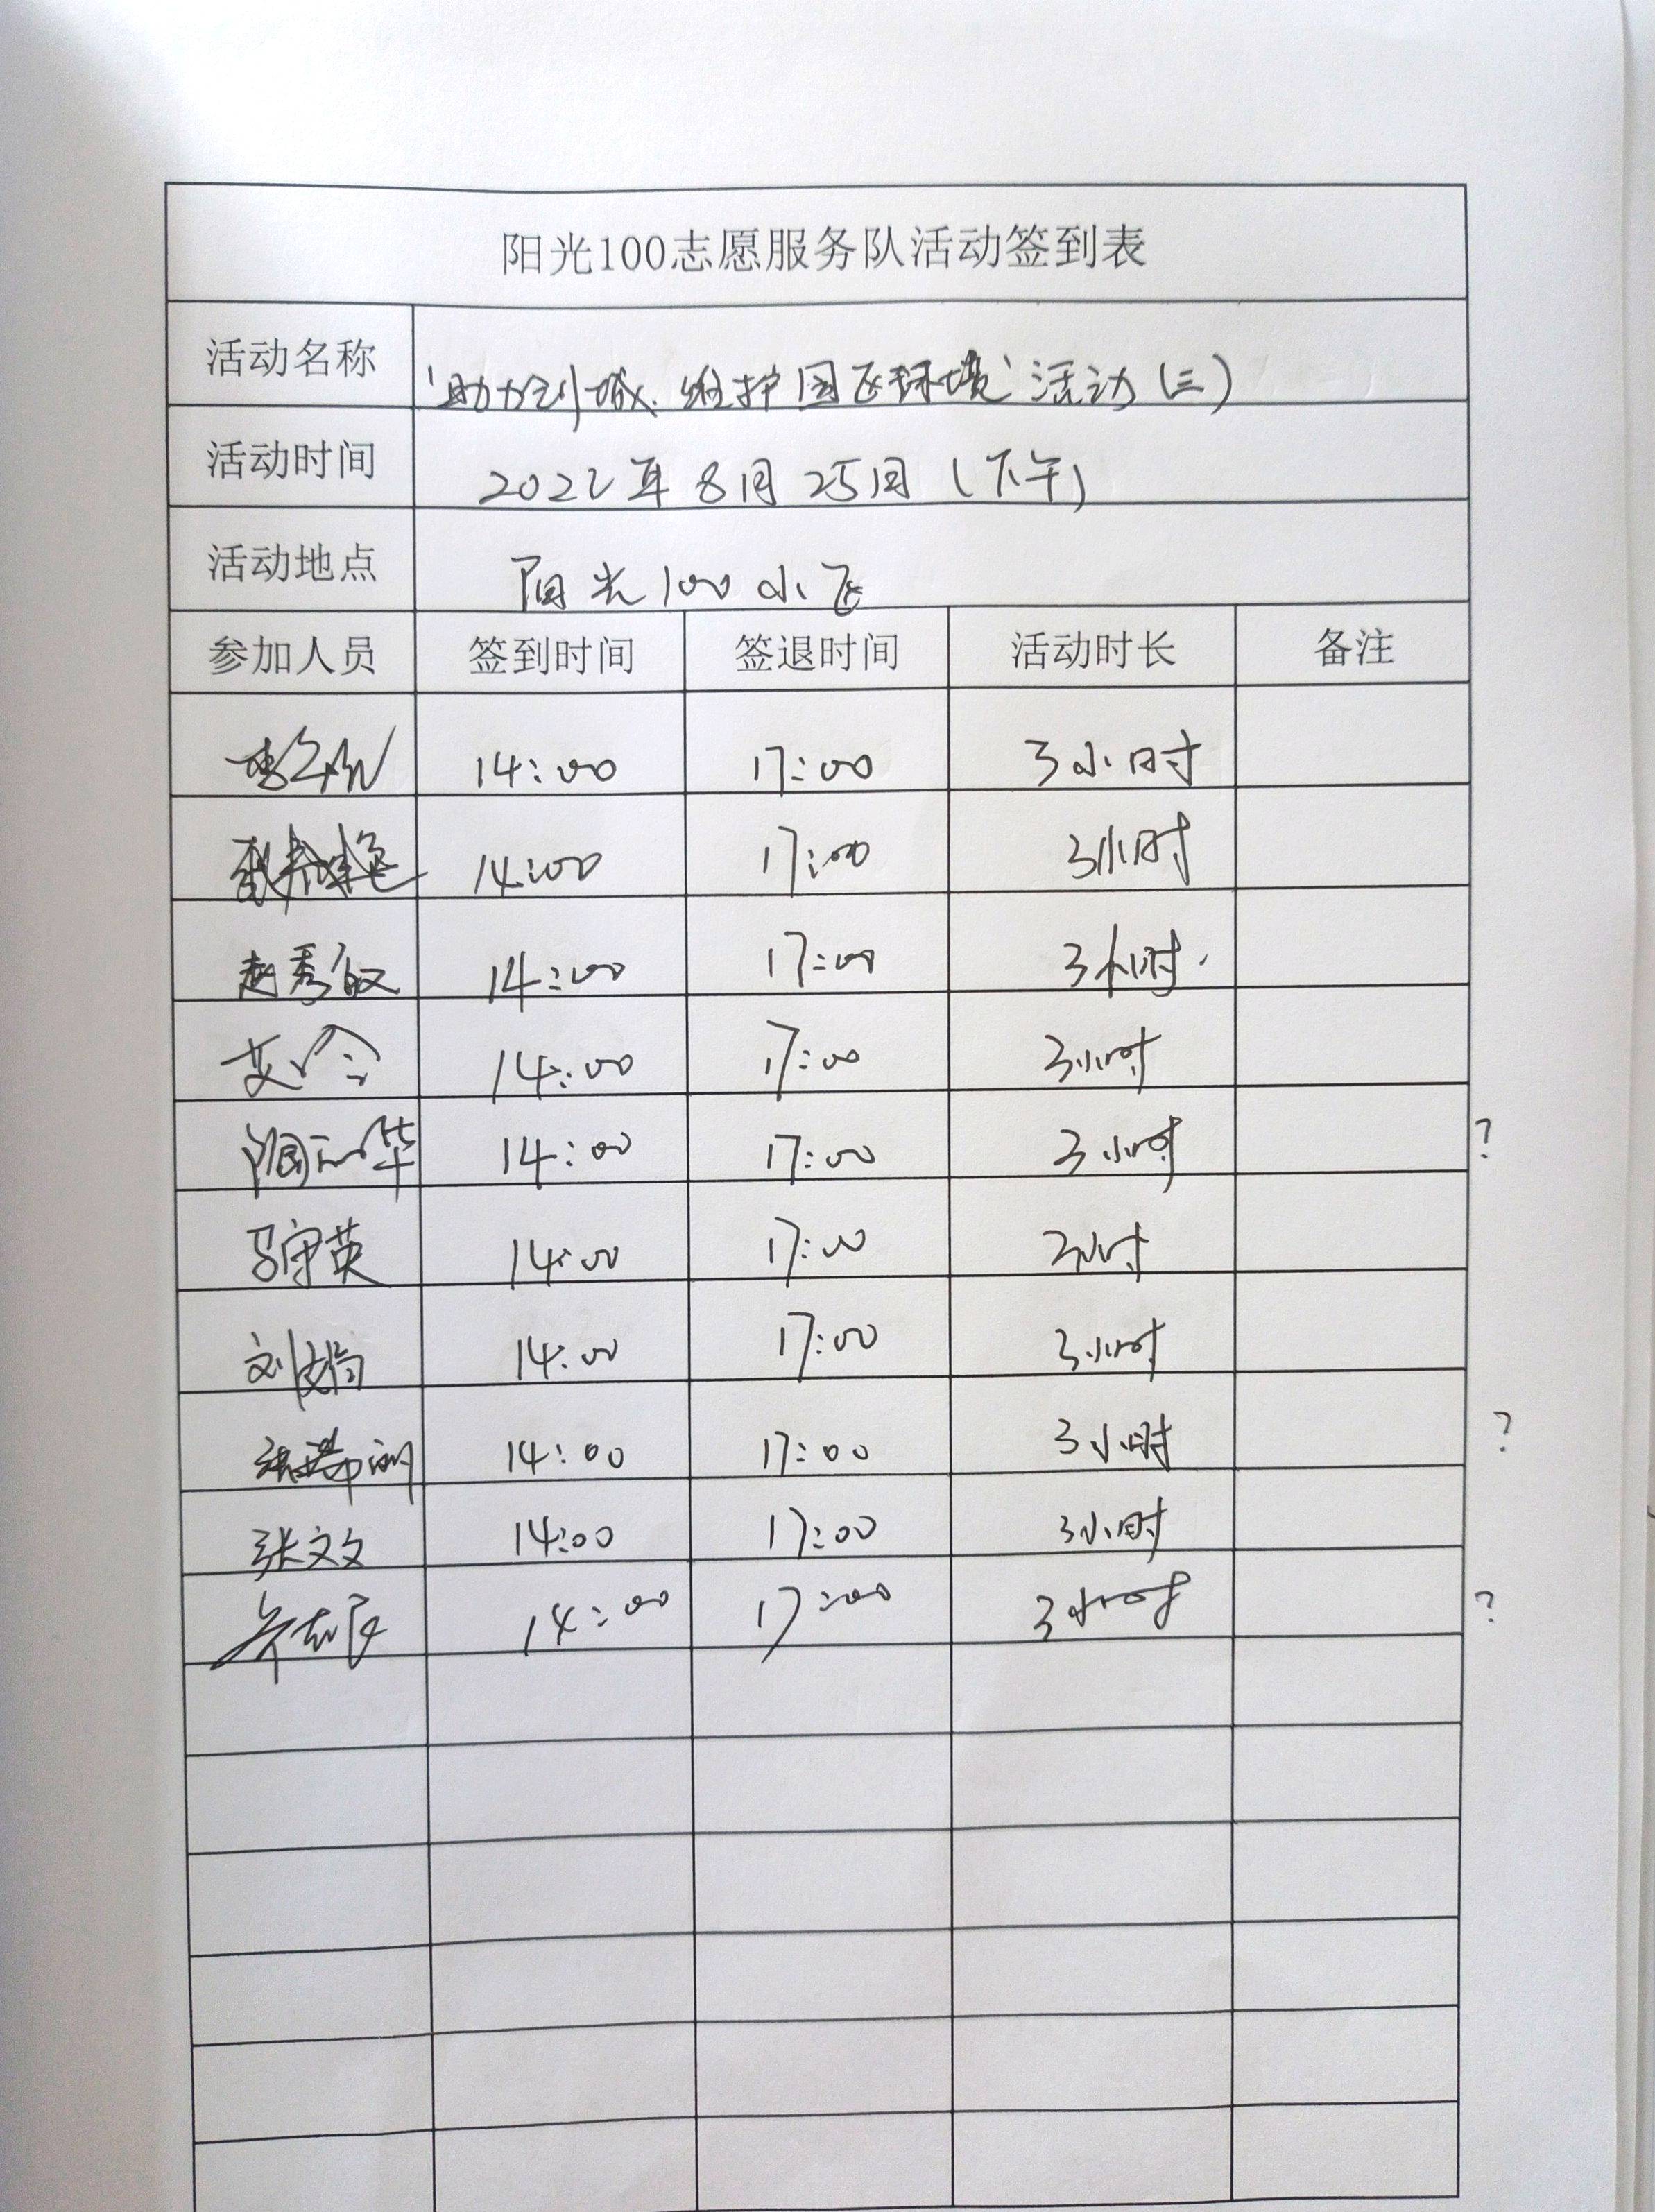 阳光100志愿服务队活动签到表
活动名称 "助力创城、维护园区环境"活动(三)
活动时间 2022年8月25日(下午)
活动地点 阳光100小区
参加人员 签到时间 签退时间 活动时长 备注
14:00 17:00 3小时
14:00 17:00 3小时
赵秀敏 14:00 17:00 3小时
14:00 17:00 3小时
华 14:00 17:00 3小时 ?
马守英 14:00 17:00 3小时
刘 14:00 17:00 3小时
张 14:00 17:00 3小时 ?
张文文 14:00 17:00 3小时
14:00 17:00 3小时 ?